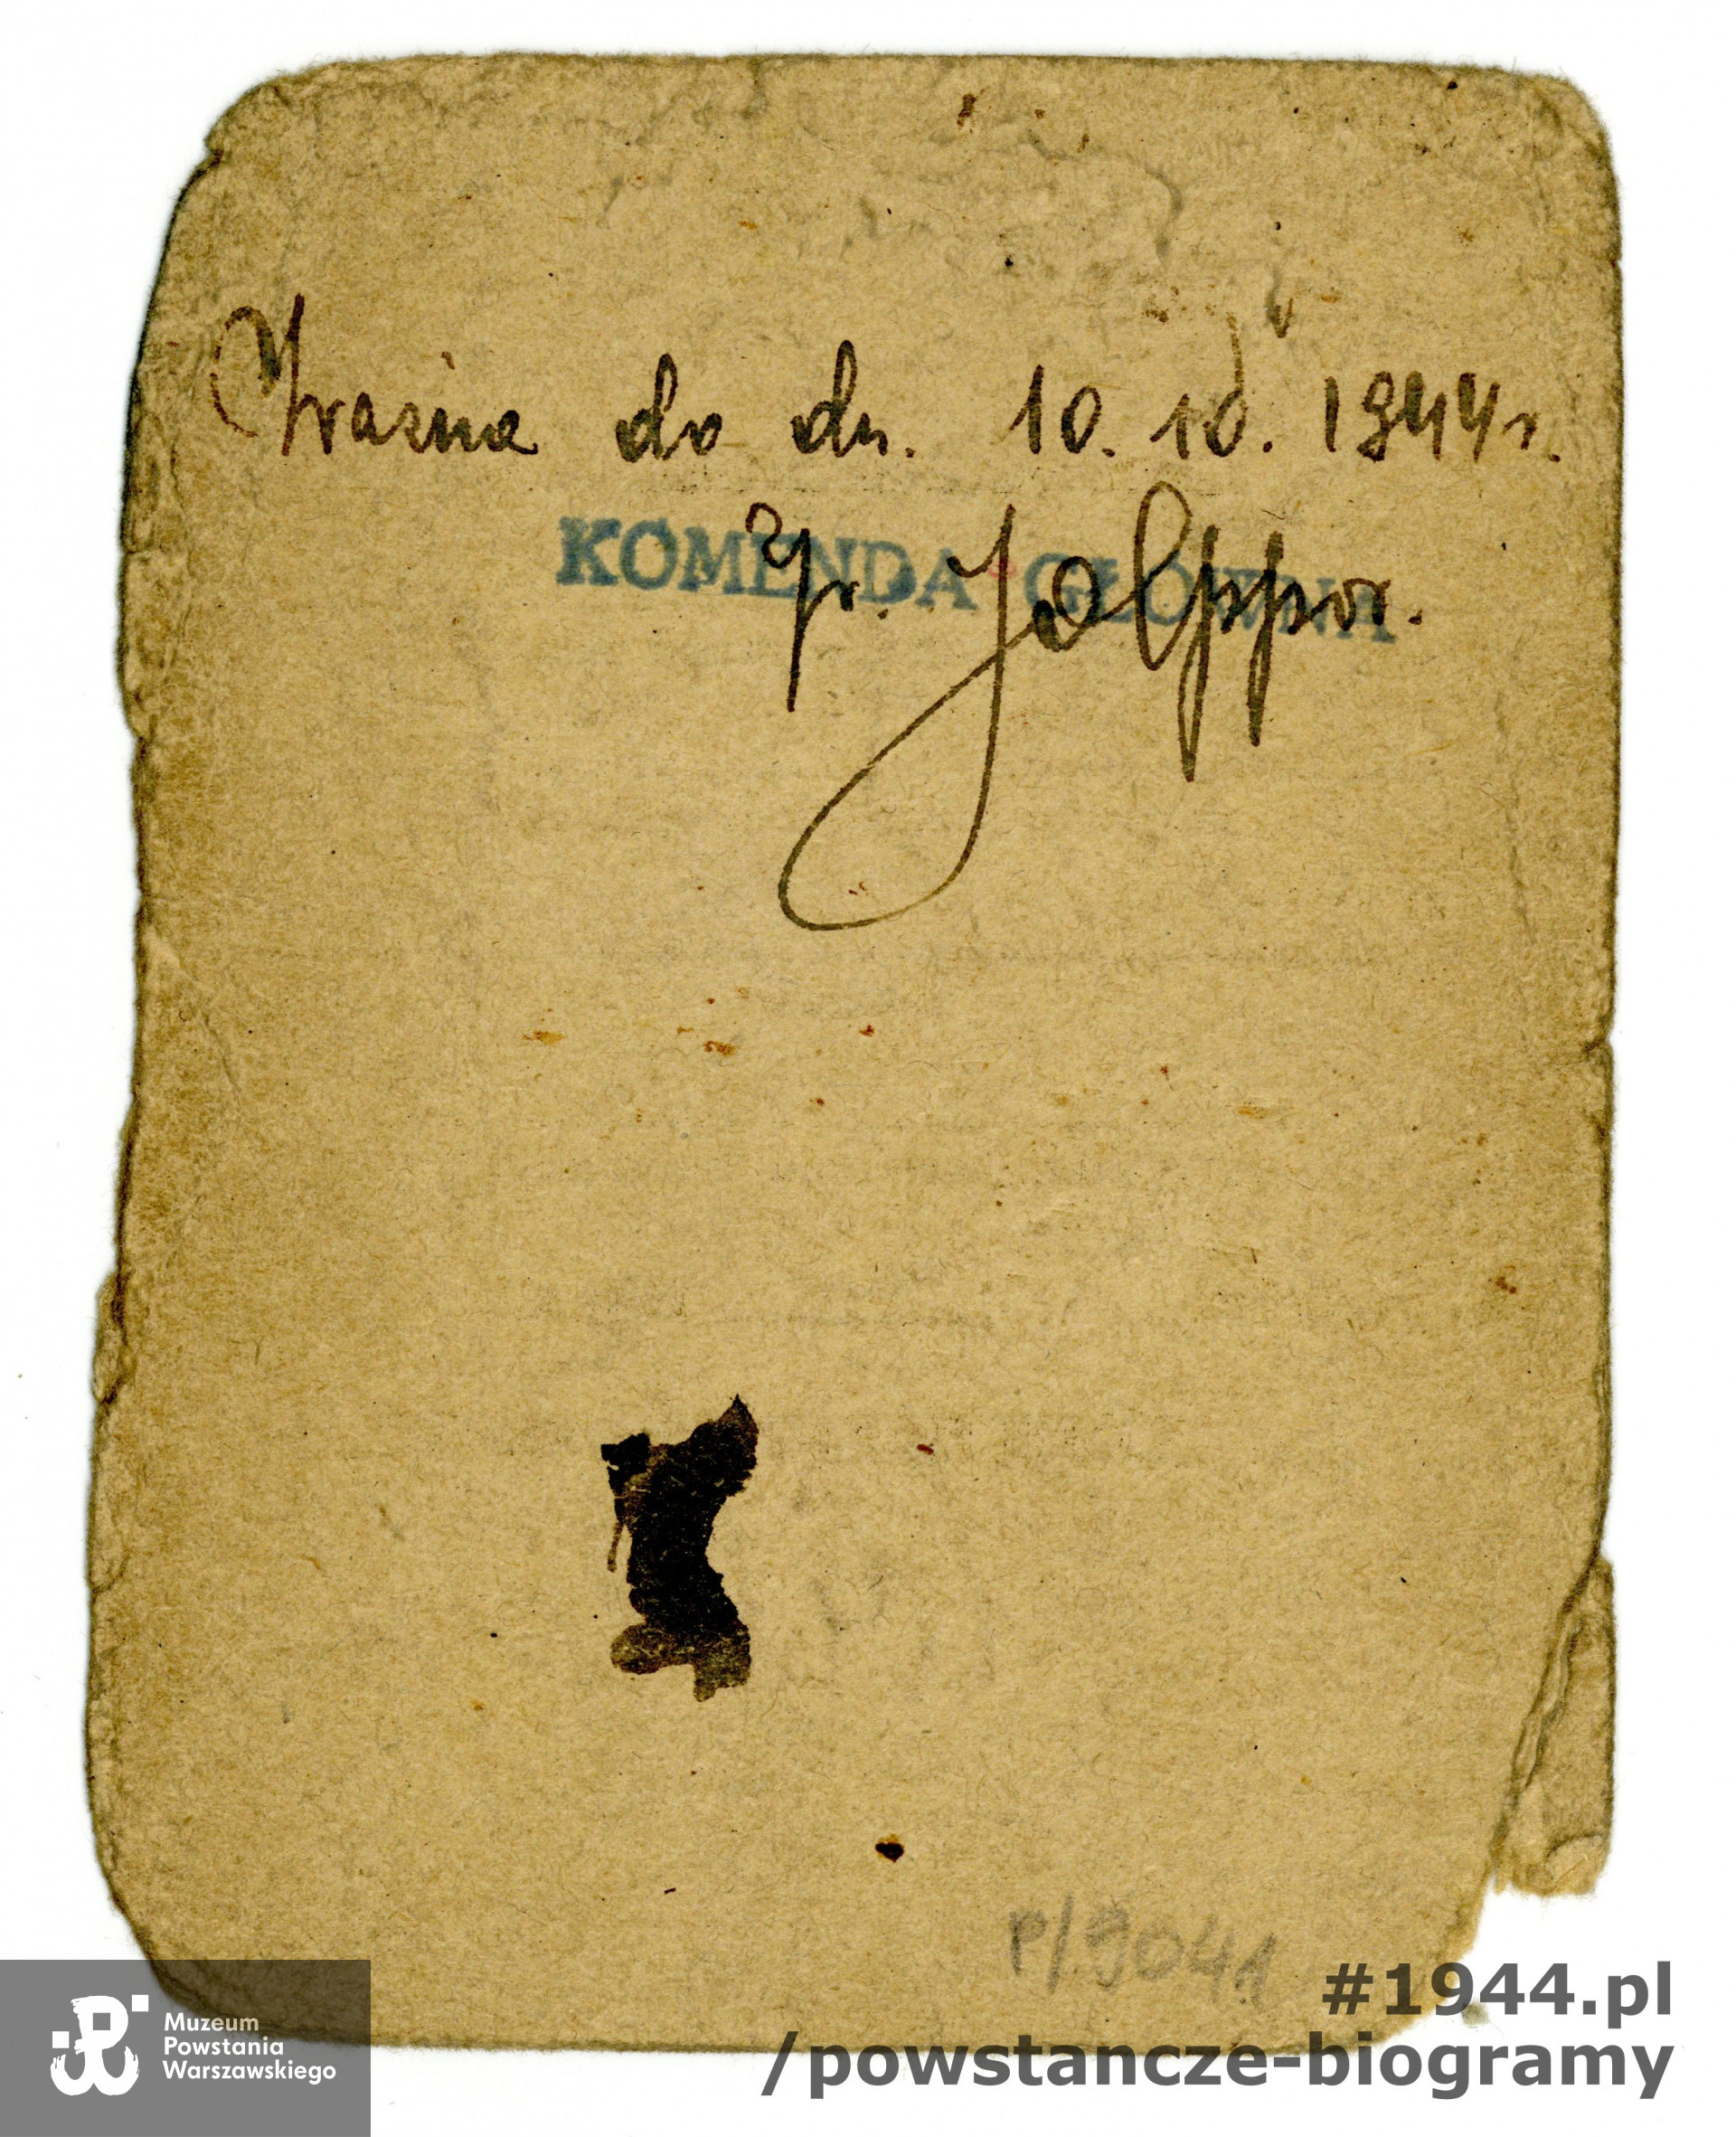 Ważna do dn. 10. 10. 1944 r.
KOMENDA GŁÓWNA
ppor.
P/9041
#1944.pl
/powstancze-biogramy
Muzeum
Powstania
Warszawskiego